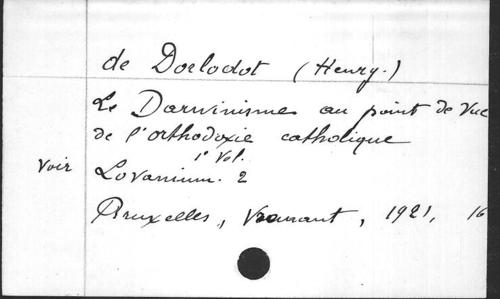 de Dorlodot (Henry.)
Le Darwinisme au point de Vue
de l'orthodoxie catholique
1º Vol.
Voir Lovanium. 2
Bruxelles, Vromant, 1921, 16